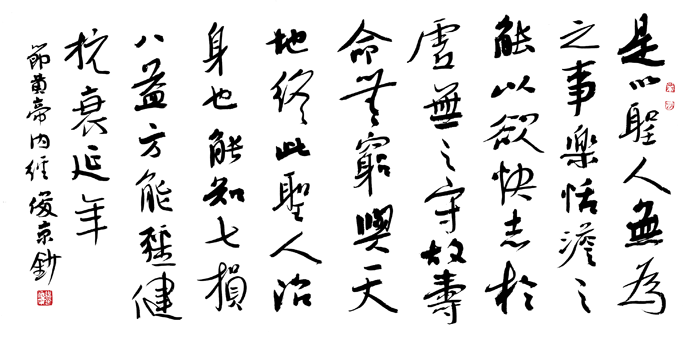 是以聖人無為
之事樂恬澹之
能以欲快志於
虛無之守故壽
命無窮與天
地終此聖人治
身也能知七損
八益方能強健
抗衰延年
節黄帝内經 俊京鈔